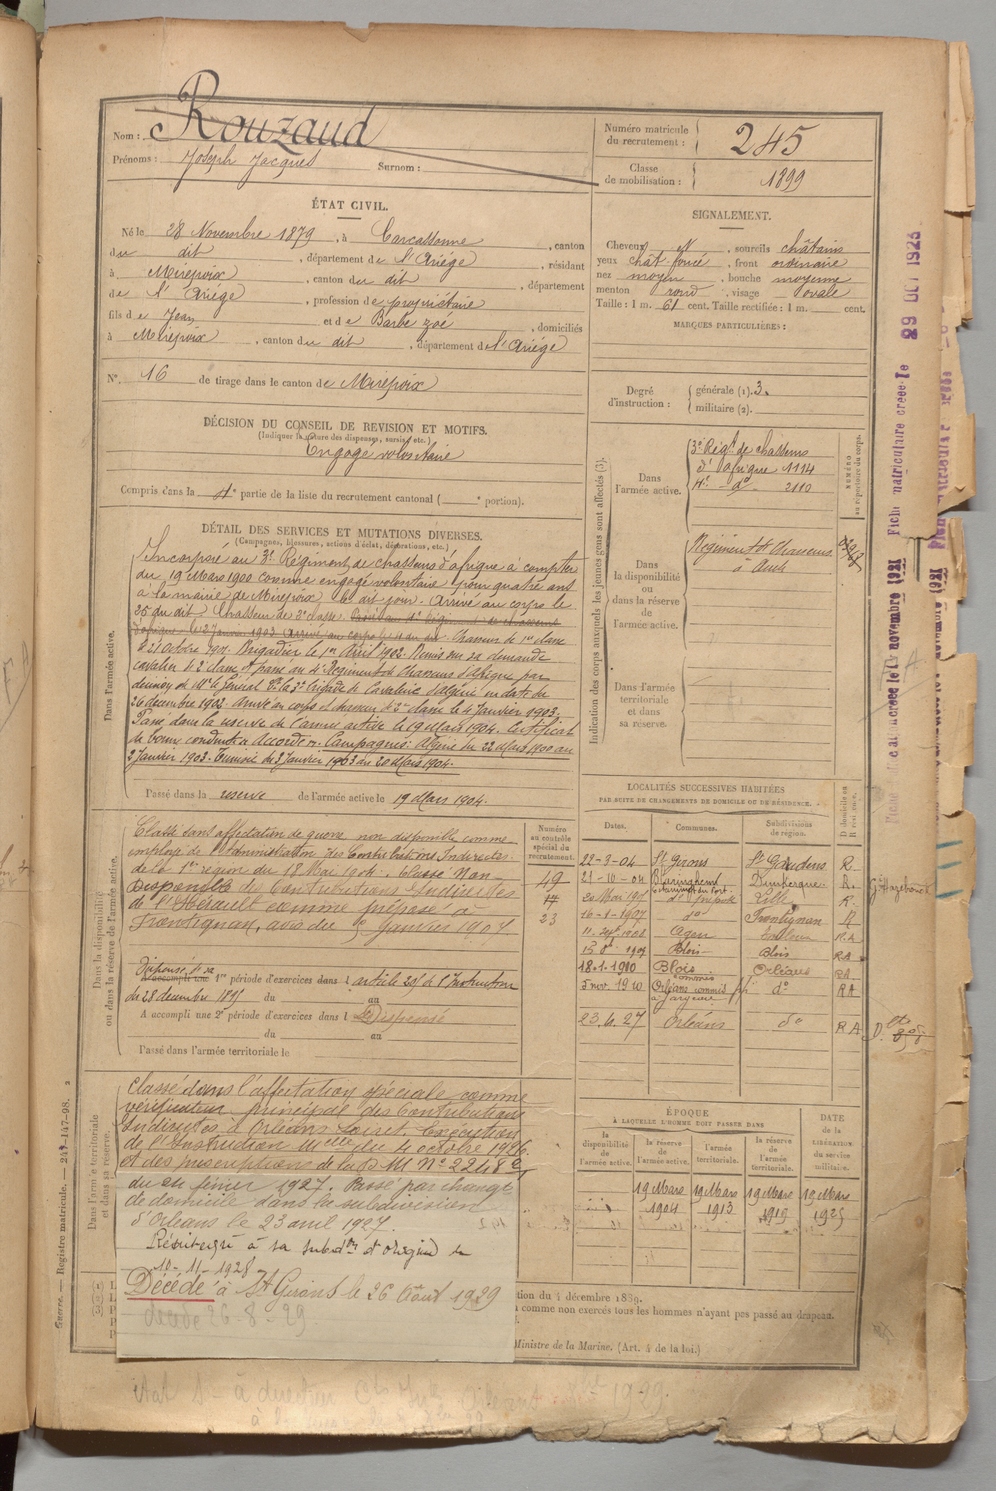 Nom : Rouzaud
Prénoms : Joseph Jacques Surnom :
Numéro matricule du recrutement : 245
Classe de mobilisation : 1899
ÉTAT CIVIL.
Né le 28 Novembre 1879, à Carcassonne, canton
du dit, département de l'Ariège, résidant
à Mirepoix, canton du dit, département
de l'Ariège, profession de propriétaire
fils de Jean et de Barbe Zoé, domiciliés
à Mirepoix, canton du dit, département de l'Ariège
N° 16 de tirage dans le canton de Mirepoix
SIGNALEMENT.
Cheveux N, sourcils châtains
yeux chât. foncé, front ordinaire
nez moyen, bouche moyenne
menton rond, visage ovale
Taille : 1 m. 61 cent. Taille rectifiée : 1 m. cent.
MARQUES PARTICULIÈRES :
DÉCISION DU CONSEIL DE REVISION ET MOTIFS.
(Indiquer la nature des dispenses, sursis, etc.)
Engagé volontaire
Compris dans la 4e partie de la liste du recrutement cantonal ( e portion).
Degré d'instruction : générale (1). 3.
militaire (2).
Indication des corps auxquels les jeunes gens sont affectés (3).
NUMÉRO au répertoire du corps.
Dans l'armée active.
3e Régt de chasseurs
d'afrique 1114
4e do 2110
Dans la disponibilité ou dans la réserve de l'armée active.
Régiment de Chasseurs
à Auch
Dans l'armée territoriale et dans sa réserve.
DÉTAIL DES SERVICES ET MUTATIONS DIVERSES.
(Campagnes, blessures, actions d'éclat, décorations, etc.)
Dans l'armée active.
Incorporé au 3e Régiment de chasseurs d'afrique à compter
du 19 Mars 1900 comme engagé volontaire pour quatre ans
à la mairie de Mirepoix le dit jour. Arrivé au corps le
25 du dit Chasseur de 2e classe. Passé au 4e Régiment de chasseurs
d'afrique le 2 Janvier 1903. Arrivé au corps le 4 du dit. Chasseur de 1re classe
le 21 Octobre 1901. Brigadier le 1er Avril 1902. Remis sur sa demande
cavalier de 2e classe et passé au 4e Régiment de Chasseurs d'Afrique par
décision de Mr le Général Ct la 3e brigade de Cavalerie d'Algérie en date du
26 décembre 1902. Arrivé au corps et chasseur de 2e classe le 4 Janvier 1903.
Passé dans la réserve de l'armée active le 19 Mars 1904. Certificat
de bonne conduite Accordé. Campagnes: Algérie du 22 Mars 1900 au
2 Janvier 1903. Tunisie du 3 Janvier 1903 au 20 Mars 1904.
Passé dans la réserve de l'armée active le 19 Mars 1904.
Dans la disponibilité ou dans la réserve de l'armée active.
Classé sans affectation de guerre non disponible comme
employé de l'administration des Contributions Indirectes
de la 1re région du 18 Mai 1904. Classé Non-
Disponible des Contributions Indirectes
de l'Hérault comme préposé à
Frontignan, avis du Janvier 1907
Numéro au contrôle spécial du recrutement.
49
23
Dispensé de sa 1re période d'exercices dans l article 20 de l'Instruction
du 28 décembre 1895 du au
A accompli une 2e période d'exercices dans l Dispensé
du au
Passé dans l'armée territoriale le
LOCALITÉS SUCCESSIVES HABITÉES
PAR SUITE DE CHANGEMENTS DE DOMICILE OU DE RÉSIDENCE.
Dates. Communes. Subdivisions de région. D Domicile ou R résidence.
22-3-04 St Girons St Gaudens R.
21-10-04 Dunkerque R. Hazebrouck
20 Mai 1905 do préposé Lille R.
16-1-1907 do Frontignan R
Agen RA
1909 Blois Blois RA
18.1.1910 Blois commis Orléans RA
5 nov. 1920 Orléans commis à Jargeau do RA
23.4.27 Orléans do RA
Dans l'armée territoriale et dans sa réserve.
Classé dans l'affectation spéciale comme
vérificateur principal des Contributions
Indirectes à Orléans Loiret. Exécution
de l'Instruction Mlle du 4 octobre 1926
et des prescriptions de la D M No 2248
du 24 février 1927. Passé par changt
de domicile dans la subdivision
d'Orléans le 23 avril 1927.
Réintégré à sa subdon d'origine le
10-11-1928
Décédé à St Girons le 26 Août 1929
décédé 26-8-29
ÉPOQUE
À LAQUELLE L'HOMME DOIT PASSER DANS
la disponibilité de l'armée active. la réserve de l'armée active. l'armée territoriale. la réserve de l'armée territoriale. DATE de la LIBÉRATION du service militaire.
19 Mars 1904 19 Mars 1913 19 Mars 1919 19 Mars 1925
tion du 4 décembre 1889.
a comme non exercés tous les hommes n'ayant pas passé au drapeau.
Ministre de la Marine. (Art. 4 de la loi.)
Guerre. — Registre matricule. — 247-147-98.
Fiche matriculaire créée le 29 OCT 1923
1929.